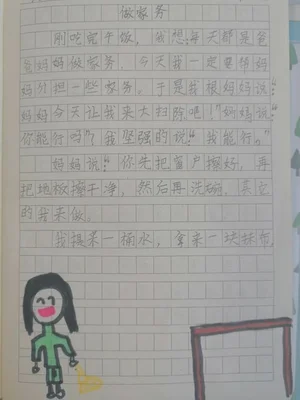 做家务
刚吃完午饭，我想，每天都是爸
爸妈妈做家务，今天我一定要帮妈
妈分担一些家务。于是我跟妈妈说：“
妈妈今天让我来大扫除吧！”妈妈说：“
你能行吗？”我坚强的说“我能行。”
妈妈说：“你先把窗户擦好，再
把地板擦干净，然后再洗碗，其它
的我来做。
我提来一桶水，拿来一块抹布，